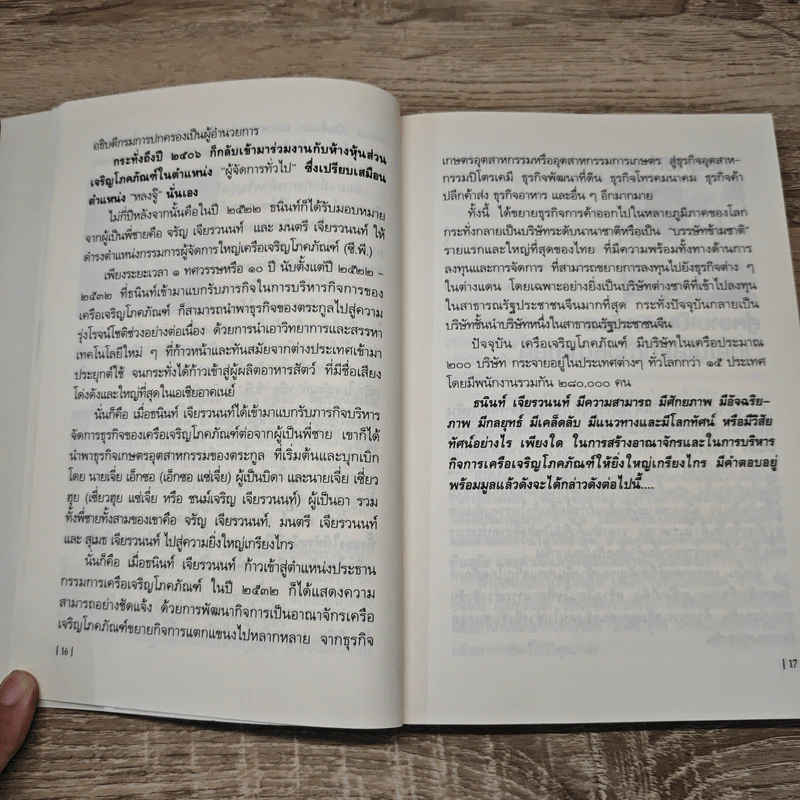 อธิบดีกรมการปกครองเป็นผู้อำนวยการ
กระทั่งถึงปี ๒๕๐๖ ก็กลับเข้ามาร่วมงานกับห้างหุ้นส่วน
เจริญโภคภัณฑ์ในตำแหน่ง "ผู้จัดการทั่วไป" ซึ่งเปรียบเสมือน
ตำแหน่ง "หลงจู๊" นั่นเอง
ไม่กี่ปีหลังจากนั้นคือในปี ๒๕๒๒ ธนินท์ก็ได้รับมอบหมาย
จากผู้เป็นพี่ชายคือ จรัญ เจียรวนนท์ และ มนตรี เจียรวนนท์ ให้
ดำรงตำแหน่งกรรมการผู้จัดการใหญ่เครือเจริญโภคภัณฑ์ (ซี.พี.)
เพียงระยะเวลา ๑ ทศวรรษหรือ ๑๐ ปี นับตั้งแต่ปี ๒๕๒๒ -
๒๕๓๒ ที่ธนินท์เข้ามาแบกรับภารกิจในการบริหารกิจการของ
เครือเจริญโภคภัณฑ์ ก็สามารถนำพาธุรกิจของตระกูลไปสู่ความ
รุ่งโรจน์โชติช่วงอย่างต่อเนื่อง ด้วยการนำเอาวิทยาการและสรรหา
เทคโนโลยีใหม่ ๆ ที่ก้าวหน้าและทันสมัยจากต่างประเทศเข้ามา
ประยุกต์ใช้ จนกระทั่งได้ก้าวเข้าสู่ผู้ผลิตอาหารสัตว์ ที่มีชื่อเสียง
โด่งดังและใหญ่ที่สุดในเอเชียอาคเนย์
นั่นก็คือ เมื่อธนินท์ เจียรวนนท์ได้เข้ามาแบกรับภารกิจบริหาร
จัดการธุรกิจของเครือเจริญโภคภัณฑ์ต่อจากผู้เป็นพี่ชาย เขาก็ได้
นำพาธุรกิจเกษตรอุตสาหกรรมของตระกูล ที่เริ่มต้นและบุกเบิก
โดย นายเจี่ย เอ็กซอ (เอ็กซอ แซ่เจี่ย) ผู้เป็นบิดา และนายเจี่ย เซี่ยว
ฮุย (เซี่ยวฮุย แซ่เจี่ย หรือ ชนม์เจริญ เจียรวนนท์) ผู้เป็นอา รวม
ทั้งพี่ชายทั้งสามของเขาคือ จรัญ เจียรวนนท์, มนตรี เจียรวนนท์
และ สุเมธ เจียรวนนท์ ไปสู่ความยิ่งใหญ่เกรียงไกร
นั่นก็คือ เมื่อธนินท์ เจียรวนนท์ ก้าวเข้าสู่ตำแหน่งประธาน
กรรมการเครือเจริญโภคภัณฑ์ ในปี ๒๕๓๒ ก็ได้แสดงความ
สามารถอย่างชัดแจ้ง ด้วยการพัฒนากิจการเป็นอาณาจักรเครือ
เจริญโภคภัณฑ์ขยายกิจการแตกแขนงไปหลากหลาย จากธุรกิจ
| 16 |
เกษตรอุตสาหกรรมหรืออุตสาหกรรมการเกษตร สู่ธุรกิจอุตสาห-
กรรมปิโตรเคมี ธุรกิจพัฒนาที่ดิน ธุรกิจโทรคมนาคม ธุรกิจค้า
ปลีกค้าส่ง ธุรกิจอาหาร และอื่น ๆ อีกมากมาย
ทั้งนี้ ได้ขยายธุรกิจการค้าออกไปในหลายภูมิภาคของโลก
กระทั่งกลายเป็นบริษัทระดับนานาชาติหรือเป็น "บรรษัทข้ามชาติ"
รายแรกและใหญ่ที่สุดของไทย ที่มีความพร้อมทั้งทางด้านการ
ลงทุนและการจัดการ ที่สามารถขยายการลงทุนไปยังธุรกิจต่าง ๆ
ในต่างแดน โดยเฉพาะอย่างยิ่งเป็นบริษัทต่างชาติที่เข้าไปลงทุน
ในสาธารณรัฐประชาชนจีนมากที่สุด กระทั่งปัจจุบันกลายเป็น
บริษัทชั้นนำบริษัทหนึ่งในสาธารณรัฐประชาชนจีน
ปัจจุบัน เครือเจริญโภคภัณฑ์ มีบริษัทในเครือประมาณ
๒๐๐ บริษัท กระจายอยู่ในประเทศต่างๆ ทั่วโลกกว่า ๑๕ ประเทศ
โดยมีพนักงานรวมกัน ๒๘๐,๐๐๐ คน
ธนินท์ เจียรวนนท์ มีความสามารถ มีศักยภาพ มีอัจฉริย-
ภาพ มีกลยุทธ์ มีเคล็ดลับ มีแนวทางและมีโลกทัศน์ หรือมีวิสัย
ทัศน์อย่างไร เพียงใด ในการสร้างอาณาจักรและในการบริหาร
กิจการเครือเจริญโภคภัณฑ์ให้ยิ่งใหญ่เกรียงไกร มีคำตอบอยู่
พร้อมมูลแล้วดังจะได้กล่าวดังต่อไปนี้....
| 17